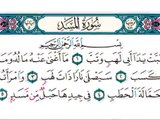 سُورَةُ المَسَدِ
بِسْمِ اللَّهِ الرَّحْمَٰنِ الرَّحِيمِ
تَبَّتْ يَدَا أَبِي لَهَبٍ وَتَبَّ ١ مَا أَغْنَىٰ عَنْهُ مَالُهُ وَمَا
كَسَبَ ٢ سَيَصْلَىٰ نَارًا ذَاتَ لَهَبٍ ٣ وَامْرَأَتُهُ
حَمَّالَةَ الْحَطَبِ ٤ فِي جِيدِهَا حَبْلٌ مِّن مَّسَدٍ ٥